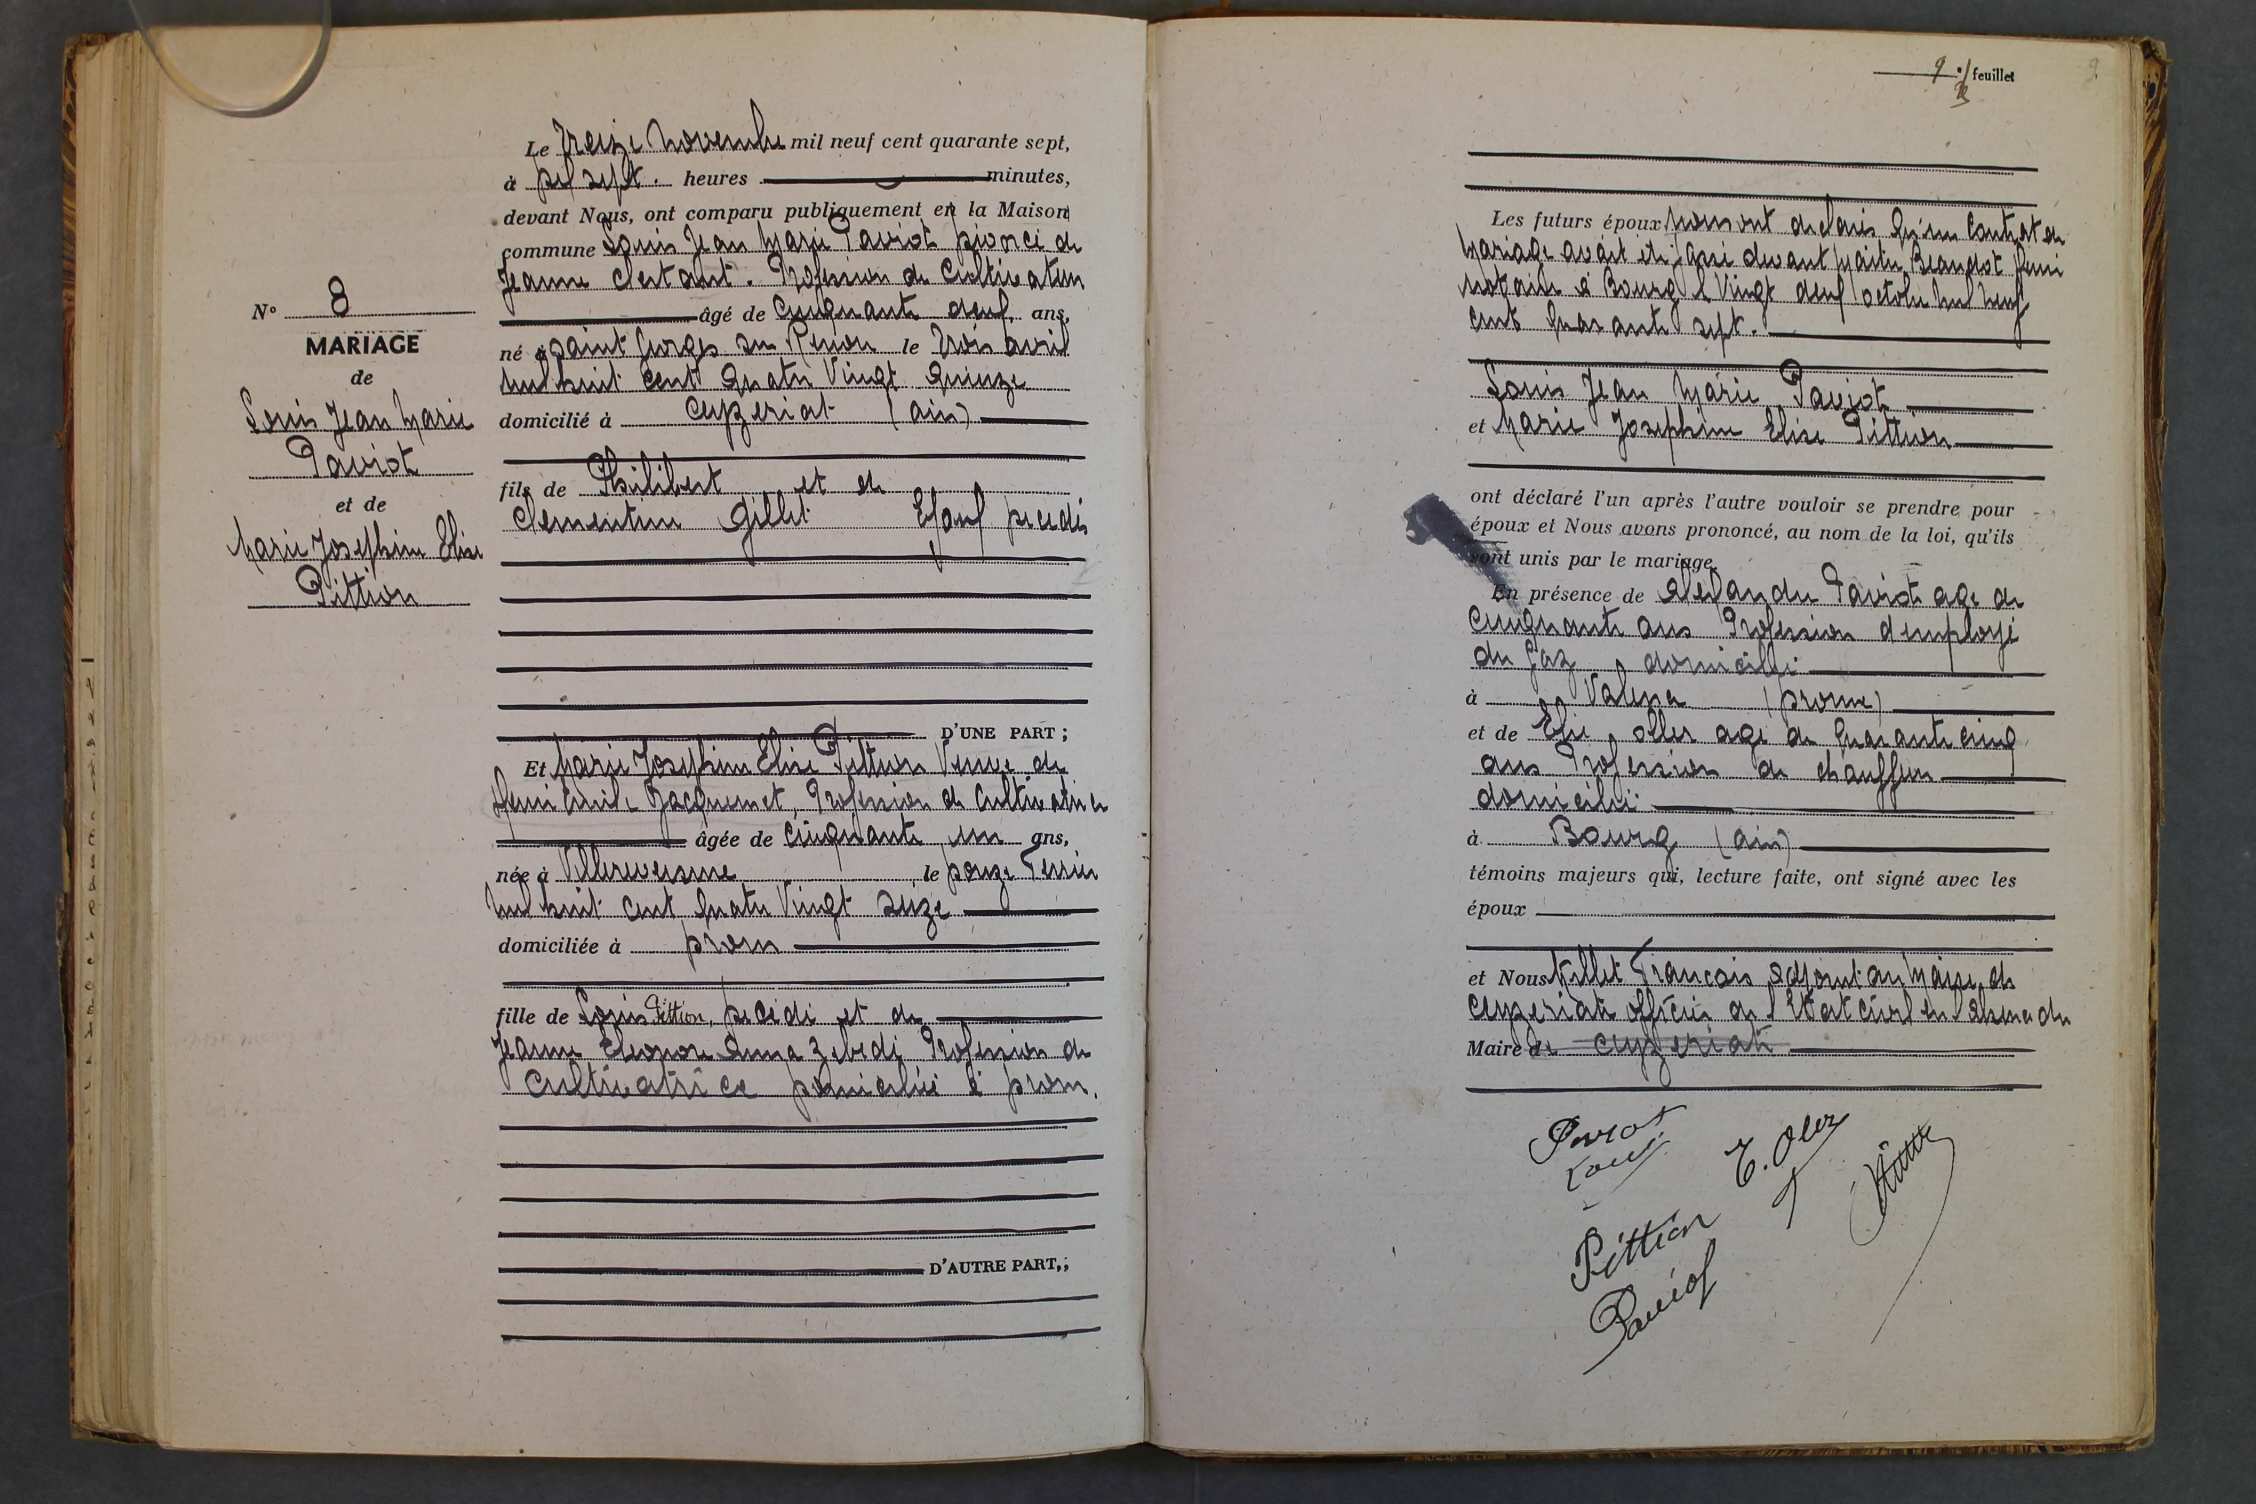 N° 8
MARIAGE
de
Louis Jean Marie
Paviot
et de
Marie Josephine Elise
Pittion
Le treize Novembre mil neuf cent quarante sept,
à dix sept. heures minutes,
devant Nous, ont comparu publiquement en la Maison
commune Louis Jean Marie Paviot Divorcé de
Jeanne. Profession de Cultivateur
âgé de Cinquante deux ans,
né à Saint Georges sur Renon le trois avril
mil huit cent quatre Vingt quinze
domicilié à Ceyzeriat (ain)
fils de Philibert et de
Clementine Gillet Décédés
D'UNE PART ;
Et Marie Josephine Elise Pittion Veuve de
Henri Emile Jacquemet, Profession de cultivatrice
âgée de cinquante un ans,
née à Villereversure le Douze Fevrier
mil huit cent quatre Vingt seize
domiciliée à Drom
fille de Louis Pittion, Décédé et de
Jeanne Eleonore Anna Profession de
Cultivatrice Domiciliée à Drom.
D'AUTRE PART,;
9 feuillet
9
Les futurs époux nous ont déclarés qu'un Contrat de
Mariage avait été passé devant Maitre Beaudot Henri
Notaire à Bourg le Vingt deux octobre mil neuf
cent quarante sept.
Louis Jean Marie Paviot
et Marie Josephine Elise Pittion
ont déclaré l'un après l'autre vouloir se prendre pour
époux et Nous avons prononcé, au nom de la loi, qu'ils
sont unis par le mariage.
En présence de Alexandre Paviot age de
cinquante ans Profession d'employé
du Gaz domicilié
à Valence (Drome)
et de Elie oller age de quarante cinq
ans Profession de chauffeur
domicilié
à Bourg (ain)
témoins majeurs qui, lecture faite, ont signé avec les
époux
et Nous Francois adjoint au Maire de
Ceyzeriat officier de l'Etat civil en l'absence du
Maire de Ceyzeriat
Paviot
Louis
E. Oller
Pittion
Paviot